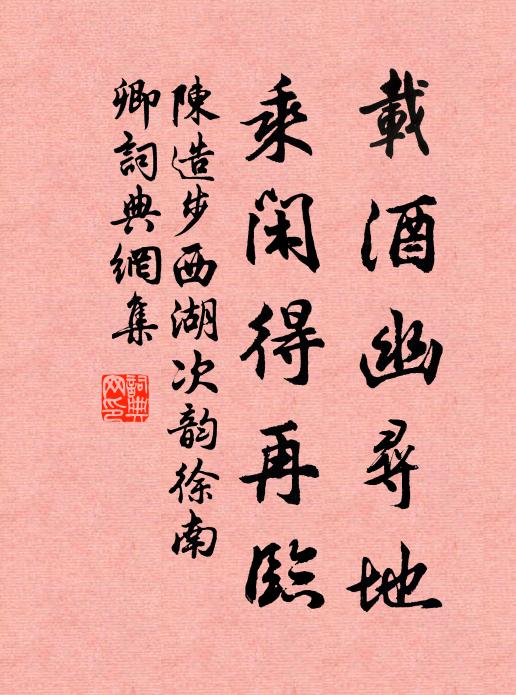 載酒幽尋地
乘閑得再臨
陳造步西湖次韵徐南
卿詞典網集
詞典網印